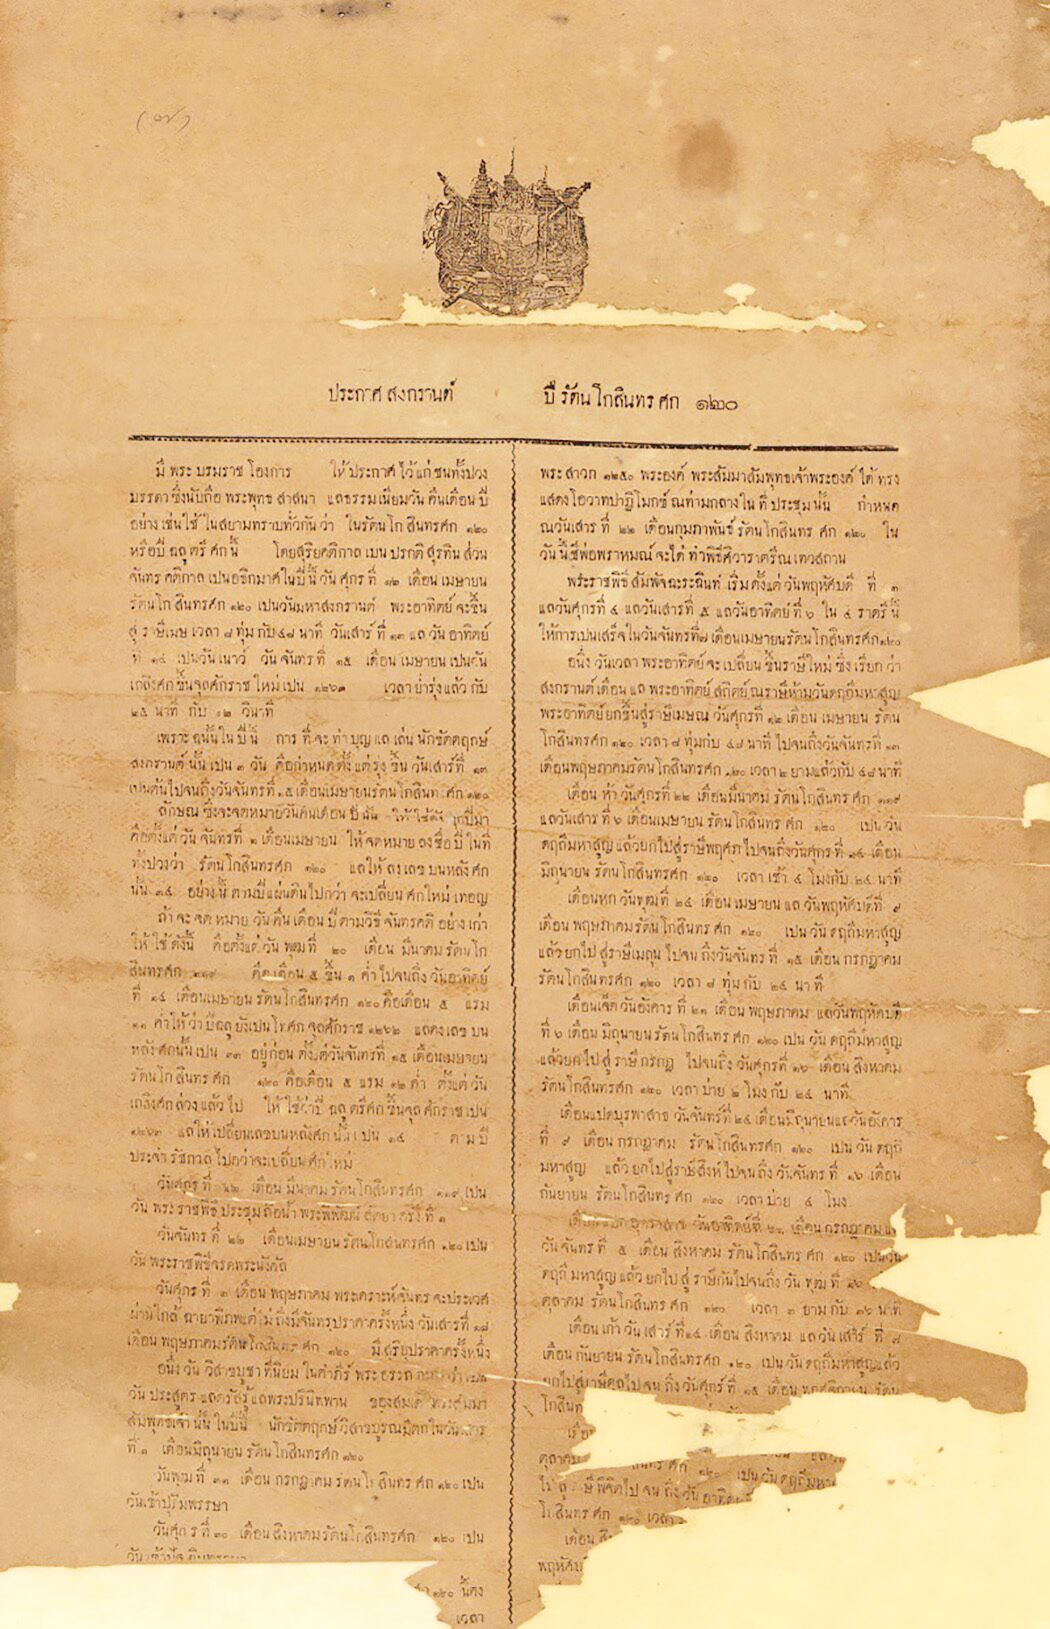 ประกาศ สงกรานต์ ปี รัตนโกสินทร ศก ๑๒๐
มี พระ บรมราช โองการ ให้ ประกาศ ไว้ แก่ ชนทั้งปวง
บรรดา ซึ่งนับถือ พระพุทธ สาสนา แลธรรมเนียมวัน คืนเดือน ปี
อย่าง เช่น ใช้ ในสยามทราบทั่วกัน ว่า ในรัตนโกสินทรศก ๑๒๐
หรือปี ฉลู ตรี ศก นี้ โดยสุริยคติกาล เปน ปรกติ สุรทิน ส่วน
จันทร คติกาล เปนอธิกมาศ ในปีนี้ วัน ศุกร ที่ ๑๒ เดือน เมษายน
รัตนโกสินทรศก ๑๒๐ เปนวันมหาสงกรานต์ พระอาทิตย์ จะขึ้น
สู่ ราษีเมษ เวลา ๘ ทุ่ม กับ ๔๘ นาที วันเสาร์ ที่ ๑๓ แล วัน อาทิตย์
ที่ ๑๔ เปนวัน เนาว์ วัน จันทร ที่ ๑๕ เดือน เมษายน เปนวัน
เถลิงศก ขึ้นจุลศักราช ใหม่ เปน ๑๒๖๓ เวลา ย่ำรุ่ง แล้ว กับ
๒๕ นาที กับ ๑๒ วินาที
เพราะ ฉนั้น ใน ปีนี้ การ ที่ จะ ทำ บุญ แล เล่น นักขัตฤกษ์
สงกรานต์ นั้น เปน ๓ วัน คือกำหนด ตั้ง แต่ รุ่ง ขึ้น วันเสาร์ที่ ๑๓
เปนต้นไปจนถึงวันจันทร์ที่ ๑๕ เดือนเมษายน รัตนโกสินทรศก ๑๒๐
ลักษณ ซึ่งจะจดหมายวันคืนเดือน ปี นั้น ให้ ใช้ดัง
คือตั้งแต่ วัน จันทรที่ ๑ เดือนเมษายน ให้ จดหมาย ลงชื่อ ปี ในที่
ทั้งปวงว่า รัตนโกสินทรศก ๑๒๐ แลให้ ลง เลข บนหลัง ศก
นั้น ๓๔ อย่างนี้ ตามปีแผ่นดินไปกว่า จะเปลี่ยน ศกใหม่ เทอญ
ถ้า จะ จด หมาย วัน คืน เดือน ปี ตามวิธี จันทรคติ อย่าง เก่า
ให้ ใช้ ดังนี้ คือตั้งแต่ วัน พุฒ ที่ ๒๐ เดือน มีนาคม รัตนโก
สินทรศก ๑๑๙ คือเดือน ๕ ขึ้น ๑ ค่ำ ไปจนถึง วันอาทิตย์
ที่ ๑๔ เดือนเมษายน รัตนโกสินทรศก ๑๒๐ คือเดือน ๕ แรม
๑๑ ค่ำ ให้ ว่า ปีฉลู ยังเปน โทศก จุลศักราช ๑๒๖๒ แลลง เลข บน
หลัง ศกนั้น เปน ๓๓ อยู่ก่อน ตั้งแต่วันจันทรที่ ๑๕ เดือนเมษายน
รัตนโกสินทรศก ๑๒๐ คือเดือน ๕ แรม ๑๒ ค่ำ ตั้งแต่ วัน
เถลิงศก ล่วง แล้ว ไป ให้ ใช้ว่าปี ฉลู ตรีศก ขึ้นจุลศักราช เปน
๑๒๖๓ แลให้ เปลี่ยนเลขบนหลังศก นั้น เปน ๓๔ ตาม ปี
ประจำ รัชกาล ไปกว่าจะเปลี่ยนศกใหม่
วันศุกร ที่ ๒๒ เดือน มีนาคม รัตนโกสินทรศก ๑๑๙ เปน
วัน พระ ราชพิธี ประชุม ถือน้ำ พระพิพัฒน์ สัตยา ครั้ง ที่ ๑
วันจันทร ที่ ๒๒ เดือนเมษายน รัตนโกสินทรศก ๑๒๐ เปน
วัน พระราชพิธีจรดพระนังคัล
วันศุกร ที่ ๓ เดือน พฤษภาคม พระเคราะห์จันทร จะประเวศ
ผ่านใกล้ ฉายาพิภพแต่ไม่ ถึงมีจันทรุปราคาครั้งหนึ่ง วันเสาร์ที่ ๑๘
เดือน พฤษภาคมรัตนโกสินทรศก ๑๒๐ มีสุริยุปราคาครั้งหนึ่ง
อนึ่ง วัน วิสาขบูชา ที่นิยม ในคำภีร์ พระ อรรถ
วัน ประสูตร แลตรัสรู้ แลพระปรินิพพาน ของสมเด็จ พระสัมมา
สัมพุทธเจ้า นั้น ในปีนี้ นักขัตฤกษ์ วิสาขบูรณมีตกในวัน
ที่ ๑ เดือนมิถุนายน รัตนโกสินทรศก ๑๒๐
วันพุฒ ที่ ๓๑ เดือน กรกฎาคม รัตนโกสินทร ศก ๑๒๐ เปน
วันเข้าปุริมพรรษา
วันศุกร ที่ ๓๐ เดือน สิงหาคม รัตนโกสินทรศก ๑๒๐ เปน
๑๒๐ นี้คง
เวลา
พระ สาวก ๑๒๕๐ พระองค์ พระสัมมาสัมพุทธเจ้าพระองค์ ได้ ทรง
แสดง โอวาทปาฏิโมกข์ ณท่ามกลางใน ที่ ประชุม นั้น กำหนด
ณวันเสาร ที่ ๒๒ เดือนกุมภาพันธ์ รัตนโกสินทร ศก ๑๒๐ ใน
วัน นี้ชีพ่อพราหมณ์ จะได้ ทำพิธีศิวาราตรีณเทวสถาน
พระราชพิธี สัมพัจฉะระฉินท์ เริ่ม ตั้งแต่ วันพฤหัศบดี ที่ ๓
แลวันศุกรที่ ๔ แลวันเสาร์ที่ ๕ แลวันอาทิตย์ที่ ๖ ใน ๔ ราตรีนี้
ให้การเปนเสร็จในวันจันทร์ที่๗ เดือนเมษายนรัตนโกสินทรศก๑๒๐
อนึ่ง วันเวลา พระอาทิตย์ จะ เปลี่ยน ขึ้นราษีใหม่ ซึ่ง เรียก ว่า
สงกรานต์เดือน แล พระอาทิตย์ สถิตย์ ณราษีห้ามวันดฤถีมหาสูญ
พระอาทิตย์ยกขึ้นสู่ราษีเมษณ วันศุกรที่ ๑๒ เดือน เมษายน รัตน
โกสินทรศก ๑๒๐ เวลา ๘ ทุ่มกับ ๔๘ นาที ไปจนถึงวันจันทรที่ ๑๓
เดือนพฤษภาคมรัตนโกสินทรศก ๑๒๐ เวลา ๒ ยามแล้วกับ ๔๘ นาที
เดือน ห้า วันศุกรที่ ๒๒ เดือนมีนาคม รัตนโกสินทร ศก ๑๑๙
แลวันเสาร ที่ ๖ เดือนเมษายน รัตนโกสินทร ศก ๑๒๐ เปน วัน
ดฤถีมหาสูญ แล้วยกไปสู่ราษีพฤศภ ไปจนถึงวันศุกรที่ ๑๔ เดือน
มิถุนายน รัตนโกสินทรศก ๑๒๐ เวลา เช้า ๔ โมงกับ ๒๔ นาที
เดือนหก วันพุฒที่ ๒๔ เดือน เมษายน แล วันพฤหัศบดีที่ ๙
เดือน พฤษภาคมรัตนโกสินทร ศก ๑๒๐ เปน วัน ดฤถีมหาสูญ
แล้วยกไป สู่ ราษีเมถุน ไปจน ถึงวันจันทร ที่ ๑๕ เดือน กรกฎาคม
รัตนโกสินทรศก ๑๒๐ เวลา ๘ ทุ่ม กับ ๒๔ นาที
เดือนเจ็ด วันอังคาร ที่ ๒๑ เดือน พฤษภาคม แลวันพฤหัศบดี
ที่ ๖ เดือน มิถุนายน รัตนโกสินทร ศก ๑๒๐ เปน วัน ดฤถีมหาสูญ
แล้วยกไป สู่ ราษี กรกฎ ไปจนถึง วันศุกรที่ ๑๖ เดือน สิงหาคม
รัตนโกสินทรศก ๑๒๐ เวลา บ่าย ๒ โมง กับ ๒๔ นาที
เดือนแปดบุรพาสาธ วันจันทร์ที่ ๒๔ เดือนมิถุนายนแลวันอังคาร
ที่ ๙ เดือน กรกฎาคม รัตนโกสินทรศก ๑๒๐ เปน วัน ดฤถี
มหาสูญ แล้ว ยกไปสู่ราษีสิงห์ ไปจนถึง วันจันทร ที่ ๑๖ เดือน
กันยายน รัตนโกสินทร ศก ๑๒๐ เวลาบ่าย ๔ โมง
วันอาทิตย์ที่ เดือน กรกฎาคม
วัน จันทร ที่ ๕ เดือน สิงหาคม รัตนโกสินทร ศก ๑๒๐ เปนวัน
ดฤถีมหาสูญ แล้ว ยกไป สู่ ราษีกันไปจนถึง วัน พุฒ ที่ ๑๖
ตุลาคม รัตนโกสินทร ศก ๑๒๐ เวลา ๓ ยาม กับ ๓๖ นาที
เดือนเก้า วันเสาร์ ที่๒๔ เดือน สิงหาคม แลวันเสาร์ ที่ ๗
เดือน กันยายน รัตนโกสินทรศก ๑๒๐ เปน วัน ดฤถีมหาสูญแล้ว
ยกไปสู่ราษีตุลไปจน ถึงวันศุกร์ ที่ ๑๕ เดือน
โกสิน
ตุลาคม ศก ๑๒๐ เปน วัน ดฤถีมหา
ไป สู่ ราษี พิจิกไป จน ถึง วัน อาทิตย์
โกสินทร ศก ๑๒๐ เวลา
เดือน สิ
พฤหัศบ